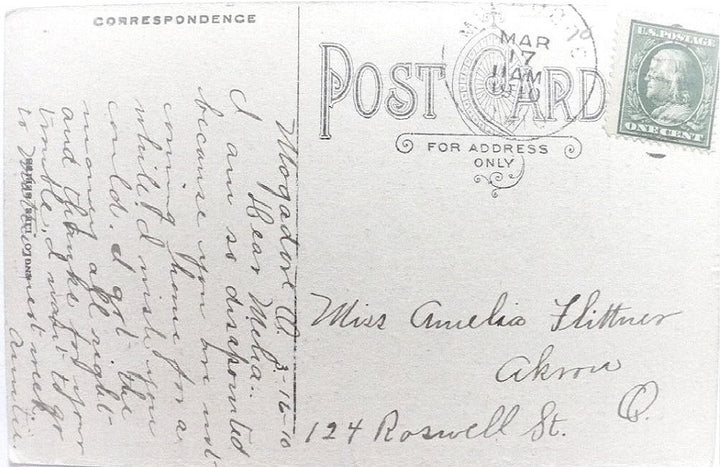 CORRESPONDENCE
Mogadore O. 3-16-10
Dear Melia:-
I am so disapointed
because you are not
coming home for a
while. I wish you
could. I got the
money all right
and thanks for your
trouble. I want to go
to next week
MAR
17
11 AM
1910
U.S. POSTAGE
ONE CENT
POST CARD
FOR ADDRESS
ONLY
Miss Amelia Flittner
Akron
O.
124 Roswell St.